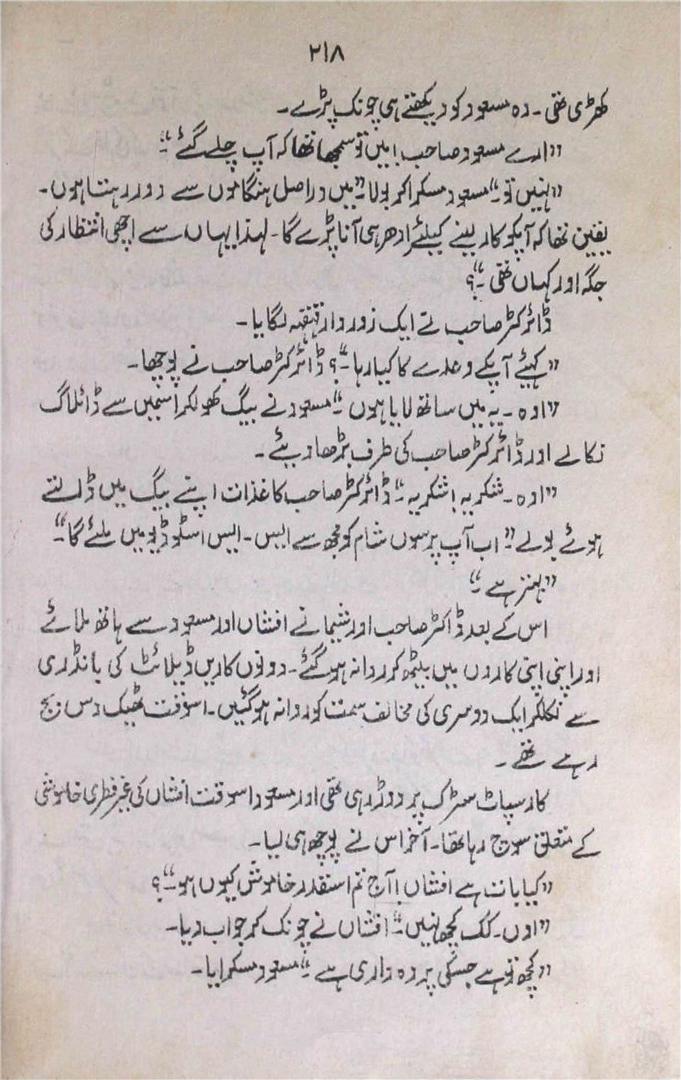 ۲۱۸
کھڑی تھی۔ وہ مسعود کو دیکھتے ہی چونک پڑے۔
"ارے مسعود صاحب! میں تو سمجھا تھا کہ آپ چلے گئے"۔
"نہیں تو۔" مسعود مسکرا کر بولا۔ "میں دراصل ہنگاموں سے دور رہتا ہوں۔
یقین تھا کہ آپکو کار لینے کیلئے ادھر ہی آنا پڑے گا۔ لہٰذا یہاں سے اچھی انتظار کی
جگہ اور کہاں تھی۔"؟
ڈائرکٹر صاحب نے ایک زور دار قہقہہ لگایا۔
"کہئے آپکے وعدے کا کیا رہا۔"؟ ڈائرکٹر صاحب نے پوچھا۔
"اوہ۔ یہ میں ساتھ لایا ہوں۔" مسعود نے بیگ کھولکر اسمیں سے ڈائلاگ
نکالے اور ڈائرکٹر صاحب کی طرف بڑھا دیئے۔
"اوہ۔ شکریہ! شکریہ۔" ڈائرکٹر صاحب کاغذات اپنے بیگ میں ڈالتے
ہوئے بولے۔ "اب آپ پرسوں شام کو مجھ سے ایس۔ ایس اسٹوڈیو میں ملئے گا۔"
"بہتر ہے۔"
اس کے بعد ڈاکٹر صاحب اور شیما نے افشاں اور مسعود سے ہاتھ ملائے
اور اپنی اپنی کاروں میں بیٹھ کر روانہ ہو گئے۔ دونوں کاریں ڈیلائٹ کی بانڈری
سے نکلکر ایک دوسری کی مخالف سمت کو روانہ ہو گئیں۔ اسوقت ٹھیک دس بج
رہے تھے۔
کار سپاٹ سڑک پر دوڑ رہی تھی اور مسعود اسوقت افشاں کی غیر فطری خاموشی
کے متعلق سوچ رہا تھا۔ آخر اس نے پوچھ ہی لیا۔
"کیا بات ہے افشاں! آج تم اسقدر خاموش کیوں ہو۔"؟
"اوں۔ کک کچھ نہیں۔" افشاں نے چونک کر جواب دیا۔
"کچھ تو ہے جسکی پردہ داری ہے۔" مسعود مسکرایا۔